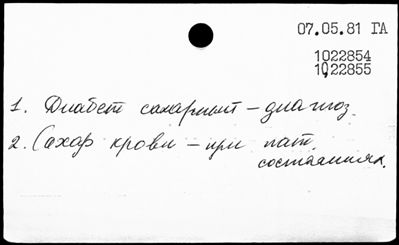 07.05.81 ГА
1022854
1022855
1. Диабет сахарный – диагноз.
2. Сахар крови – при пат.
состояниях.